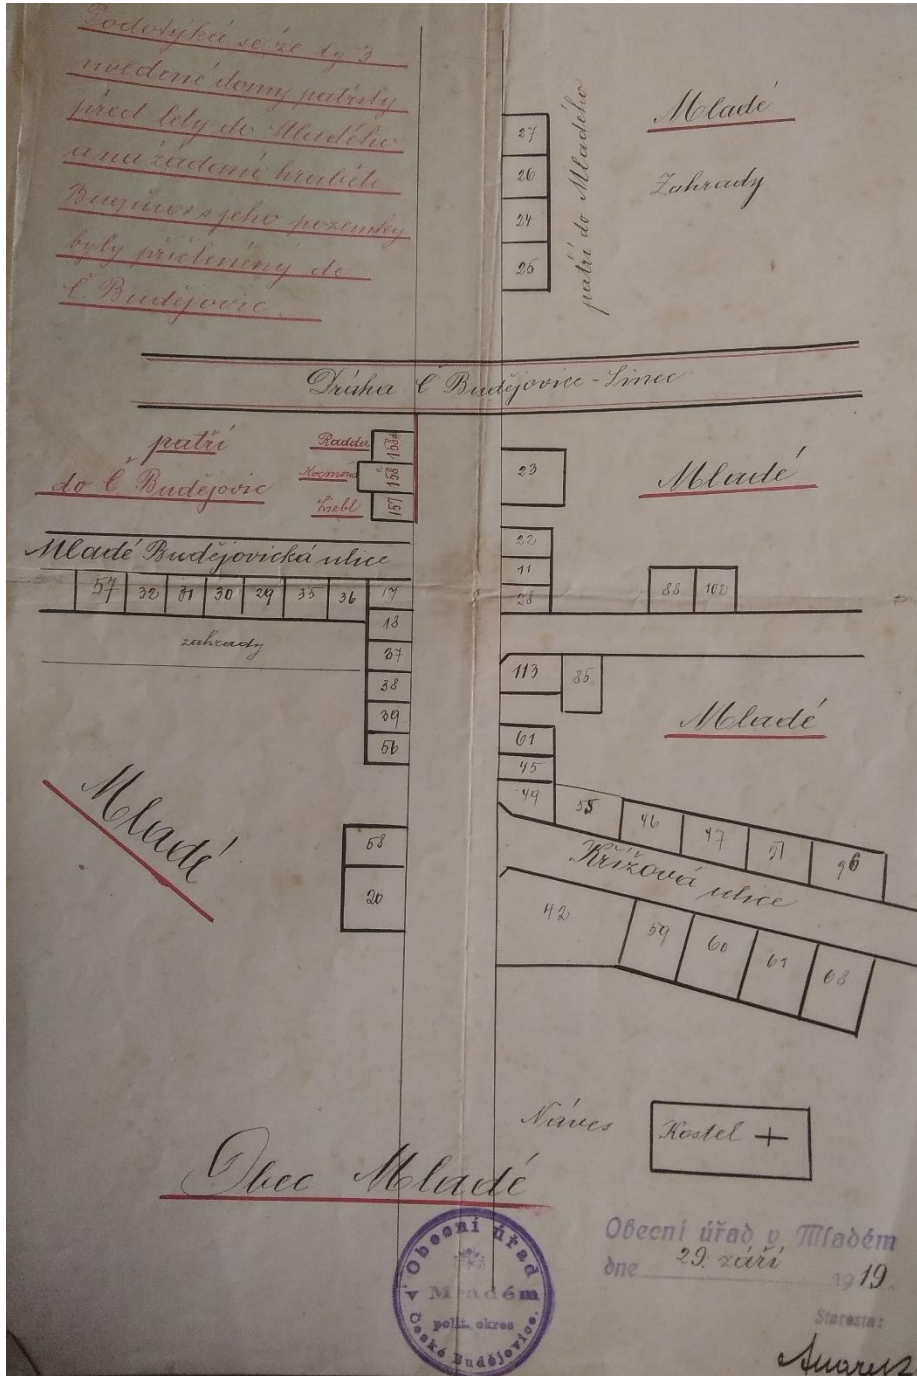 Podotýká se, že ty 3
uvedené domy patřily
před lety do Mladého
a na žádání hraběte
jeho pozemky
byly přičleněny do
Č. Budějovic.
27
26
24
25
patří do Mladého
Mladé
Zahrady
Dráha Č. Budějovice - Linec
patří
do Č. Budějovic
Radder
158a
158
Liebl
157
23
Mladé
Mladé Budějovická ulice
57 32 31 30 29 35 36 17
18
37
38
39
56
zahrady
22
11
28
88 102
113 85
Mladé
61
45
49 55 46 47 51 96
Křížová ulice
42 59 60 61 68
Mladé
58
20
Náves
Kostel +
Obec Mladé
Obecní úřad v Mladém
dne 29. září 1919.
Starosta:
Obecní úřad
v Mladém
polit. okres
České Budějovice.